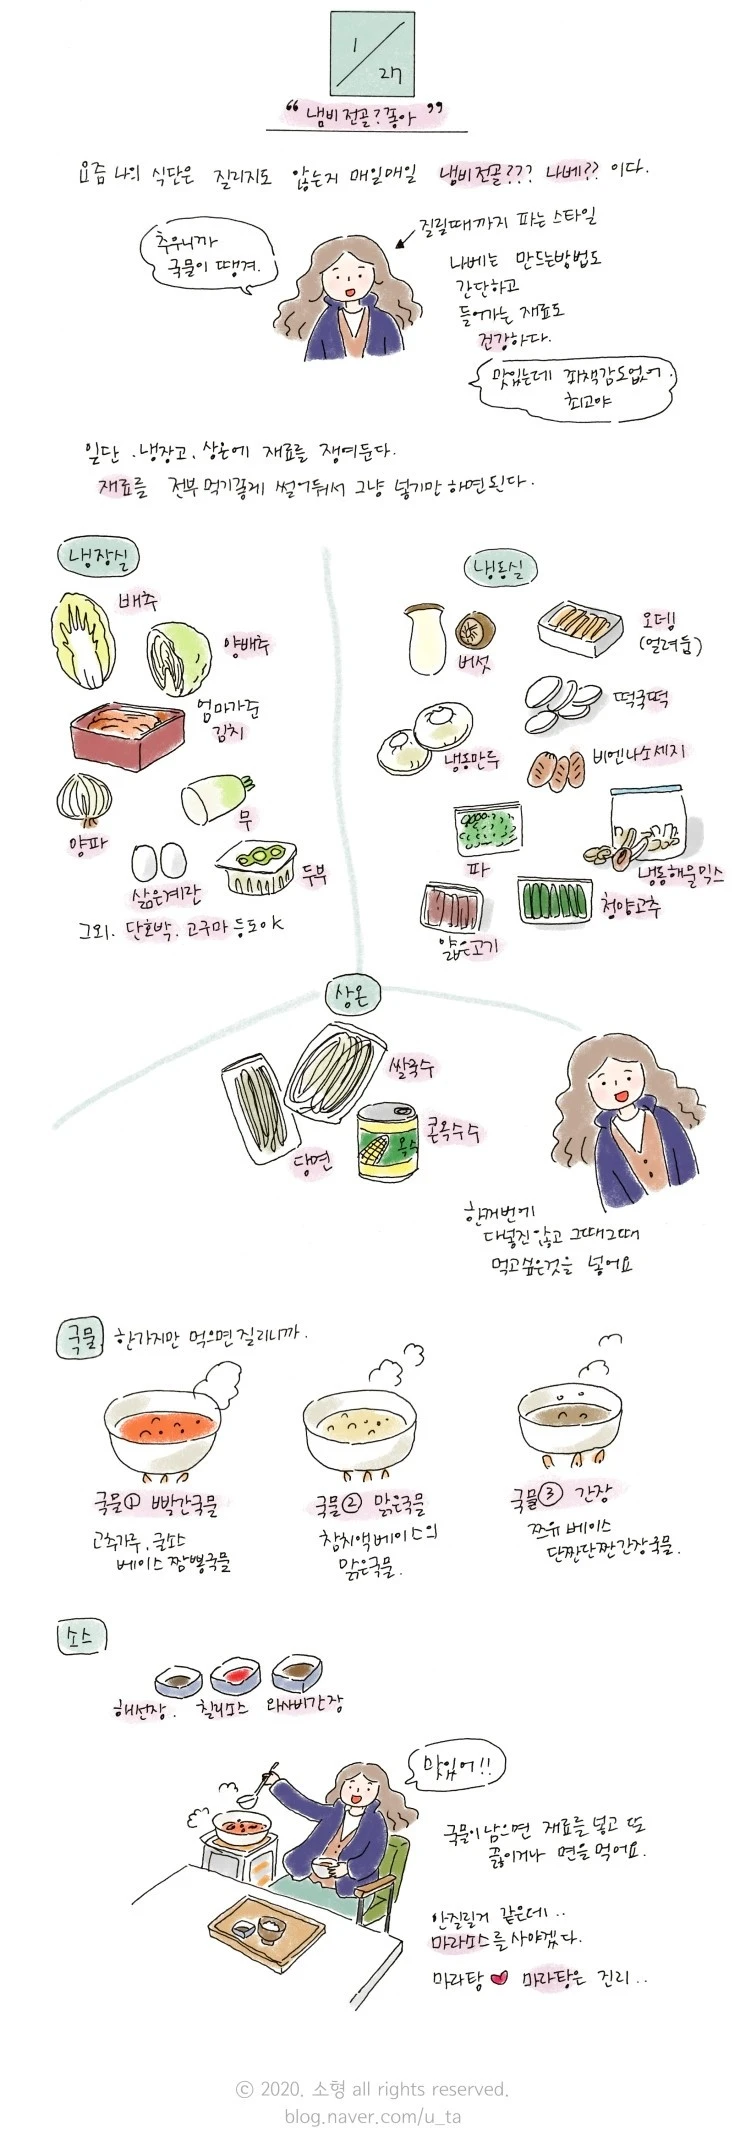 1/27
"냄비전골? 좋아"
요즘 나의 식단은 질리지도 않는지 매일매일 냄비전골??? 나베?? 이다.
추우니까
국물이 땡겨.
질릴때까지 파는 스타일
나베는 만드는방법도
간단하고
들어가는 재료도
건강하다.
맛있는데 죄책감도없어.
최고야
일단. 냉장고, 상온에 재료를 쟁여둔다.
재료를 전부 먹기좋게 썰어둬서 그냥 넣기만 하면된다.
냉장실
배추
양배추
엄마가준
김치
양파
무
삶은계란
두부
그외. 단호박. 고구마 등도ok
냉동실
버섯
오뎅
(얼려둠)
떡국떡
냉동만두
비엔나소세지
파
냉동해물믹스
얇은고기
청양고추
상온
쌀국수
당면
옥수
콘옥수수
한꺼번에
다넣진않고 그때그때
먹고싶은것을 넣어요
국물 한가지만 먹으면 질리니까.
국물① 빨간국물
고춧가루, 굴소스
베이스 짬뽕국물
국물② 맑은국물
참치액베이스의
맑은국물.
국물③ 간장
쯔유 베이스
단짠단짠 간장국물.
소스
해선장. 칠리소스 와사비간장
맛있어!!
국물이 남으면 재료를 넣고 또
끓이거나 면을 먹어요.
안질릴거 같은데..
마라소스를 사야겠다.
마라탕 ♥ 마라탕은 진리..
© 2020. 소형 all rights reserved.
blog.naver.com/u_ta